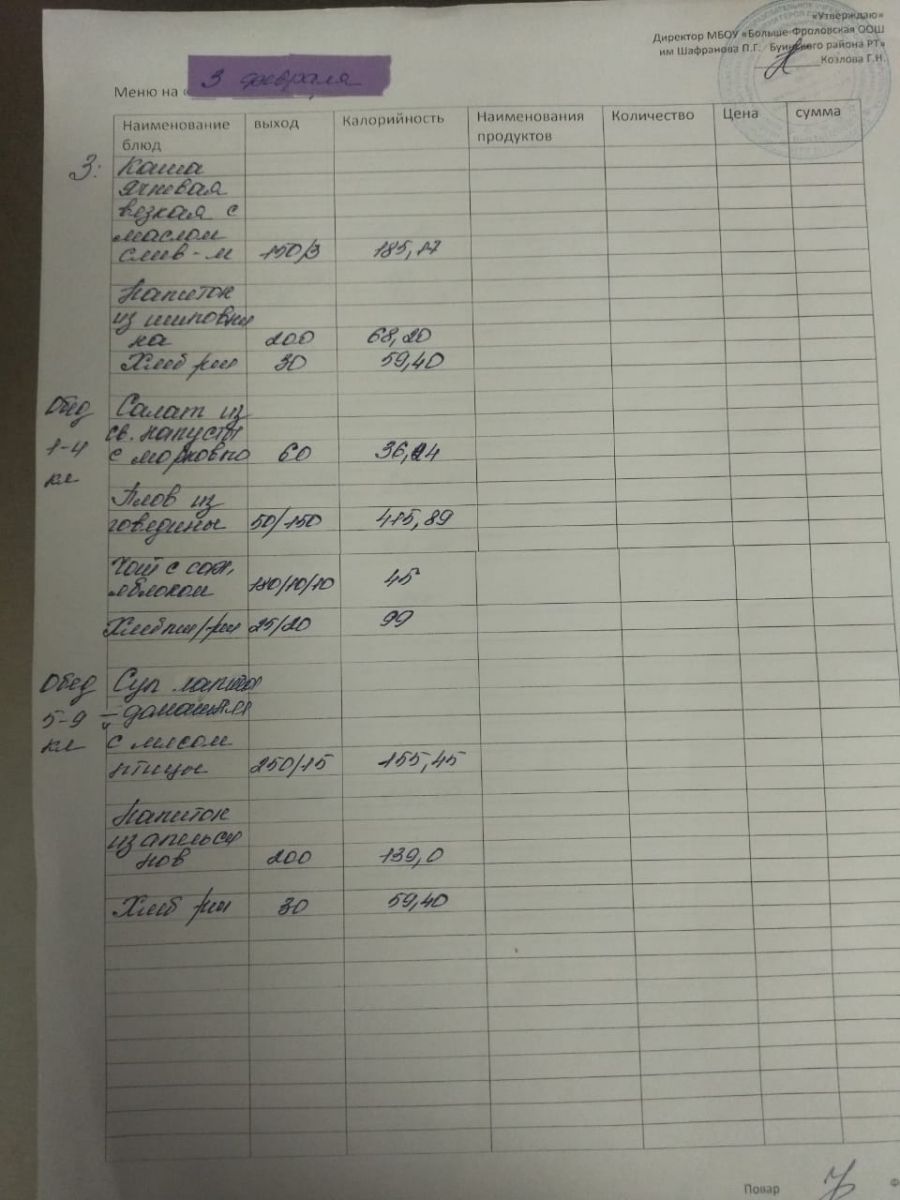 «Утверждаю»
Директор МБОУ «Больше-Фроловская ООШ
им Шафранова П.Г. Буинского района РТ»
Козлова Г.Н.
Меню на « 3 февраля
Наименование блюд выход Калорийность Наименования продуктов Количество Цена сумма
3: Каша
ячневая
вязкая с
маслом
слив-м 150/3 185,17
Напиток
из шиповни
на 200 68,20
Хлеб рж 30 59,40
Обед Салат из
св. капусты
1-4 с морковью 60 36,24
кл
Плов из
говядины 50/150 415,89
Чай с сах,
яблоком 180/10/10 45
Хлеб пш/рж 25/20 99
Обед Суп лапша
5-9 - домашняя
кл с мясом
птицы 250/15 155,45
Напиток
из апельси
нов 200 139,0
Хлеб рж 30 59,40
Повар